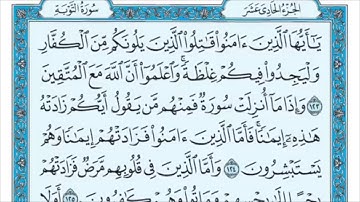 سُورَةُ التَّوْبَةِ الجُزْءُ الحَادِي عَشَرَ
يَٰٓأَيُّهَا ٱلَّذِينَ ءَامَنُوا۟ قَٰتِلُوا۟ ٱلَّذِينَ يَلُونَكُم مِّنَ ٱلْكُفَّارِ
وَلْيَجِدُوا۟ فِيكُمْ غِلْظَةً ۚ وَٱعْلَمُوٓا۟ أَنَّ ٱللَّهَ مَعَ ٱلْمُتَّقِينَ
١٢٣ وَإِذَا مَآ أُنزِلَتْ سُورَةٌ فَمِنْهُم مَّن يَقُولُ أَيُّكُمْ زَادَتْهُ
هَٰذِهِۦٓ إِيمَٰنًا ۚ فَأَمَّا ٱلَّذِينَ ءَامَنُوا۟ فَزَادَتْهُمْ إِيمَٰنًا وَهُمْ
يَسْتَبْشِرُونَ ١٢٤ وَأَمَّا ٱلَّذِينَ فِى قُلُوبِهِم مَّرَضٌ فَزَادَتْهُمْ
رِجْسًا إِلَىٰ رِجْسِهِمْ وَمَاتُوا۟ وَهُمْ كَٰفِرُونَ ١٢٥ أَوَلَا